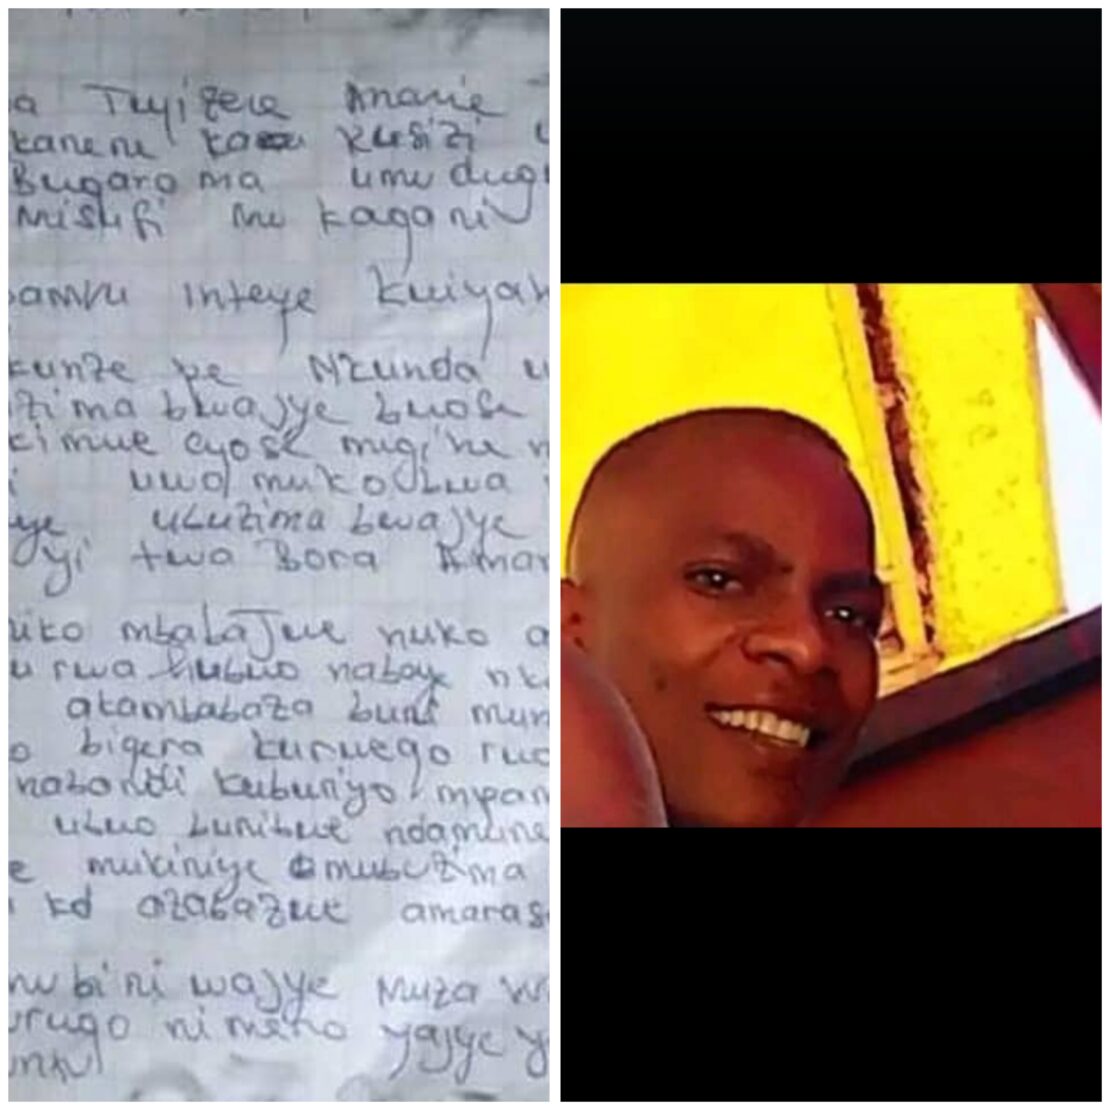 a Tuyizere Anarie
kanene kusizi
Bugaroma umudug
Misufi mu kagari
inteye kwiyah
kunze ke Nkunda u
zima bwajye bwose
kimwe cyose mugihe n
uwo mukobwa
ye ubuzima bwajye
yi twa Bora Amar
uko mbabajwe nuko a
u rwa hubwo naboye nk
akambabaza buri mun
o bigera kurwego rwo
nabandi kuburiyo mpam
ubwo buribwe ndamune
e mukiniye mubuzima
azabazwe amaras
nubiri wajye muza
urugo ni meno yajye y
untu